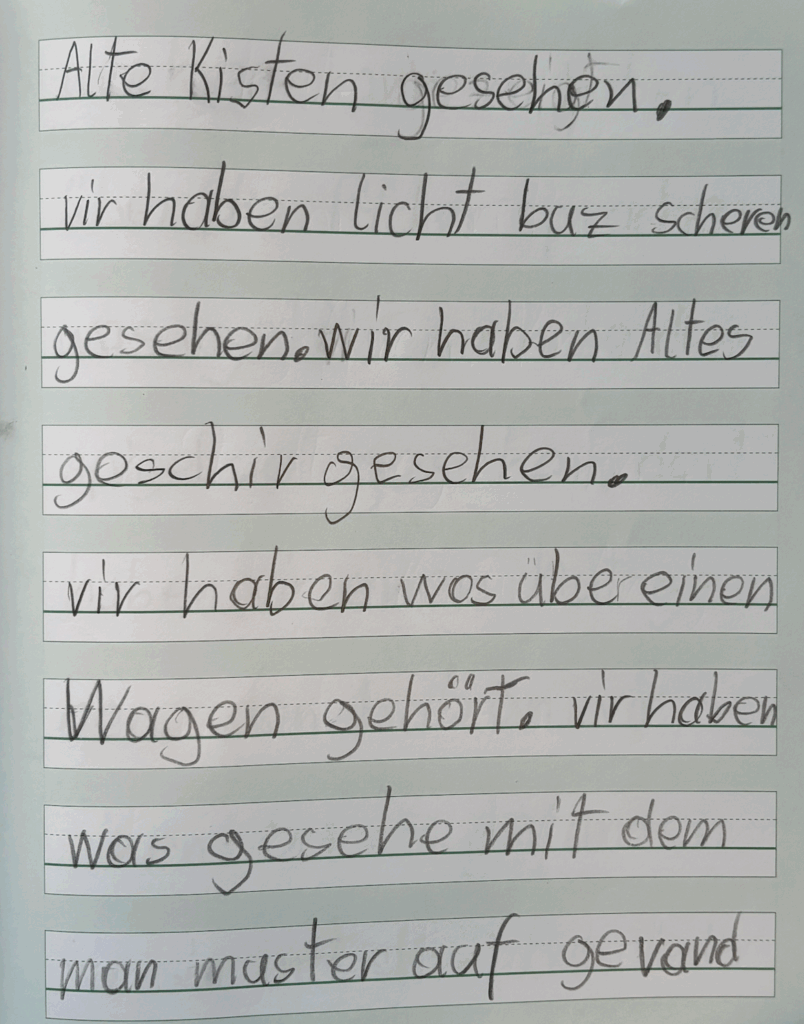 Alte Kisten gesehen.
vir haben licht buz scheren
gesehen. wir haben Altes
geschir gesehen.
vir haben was über einen
Wagen gehört. vir haben
was gesehe mit dem
man muster auf gevand